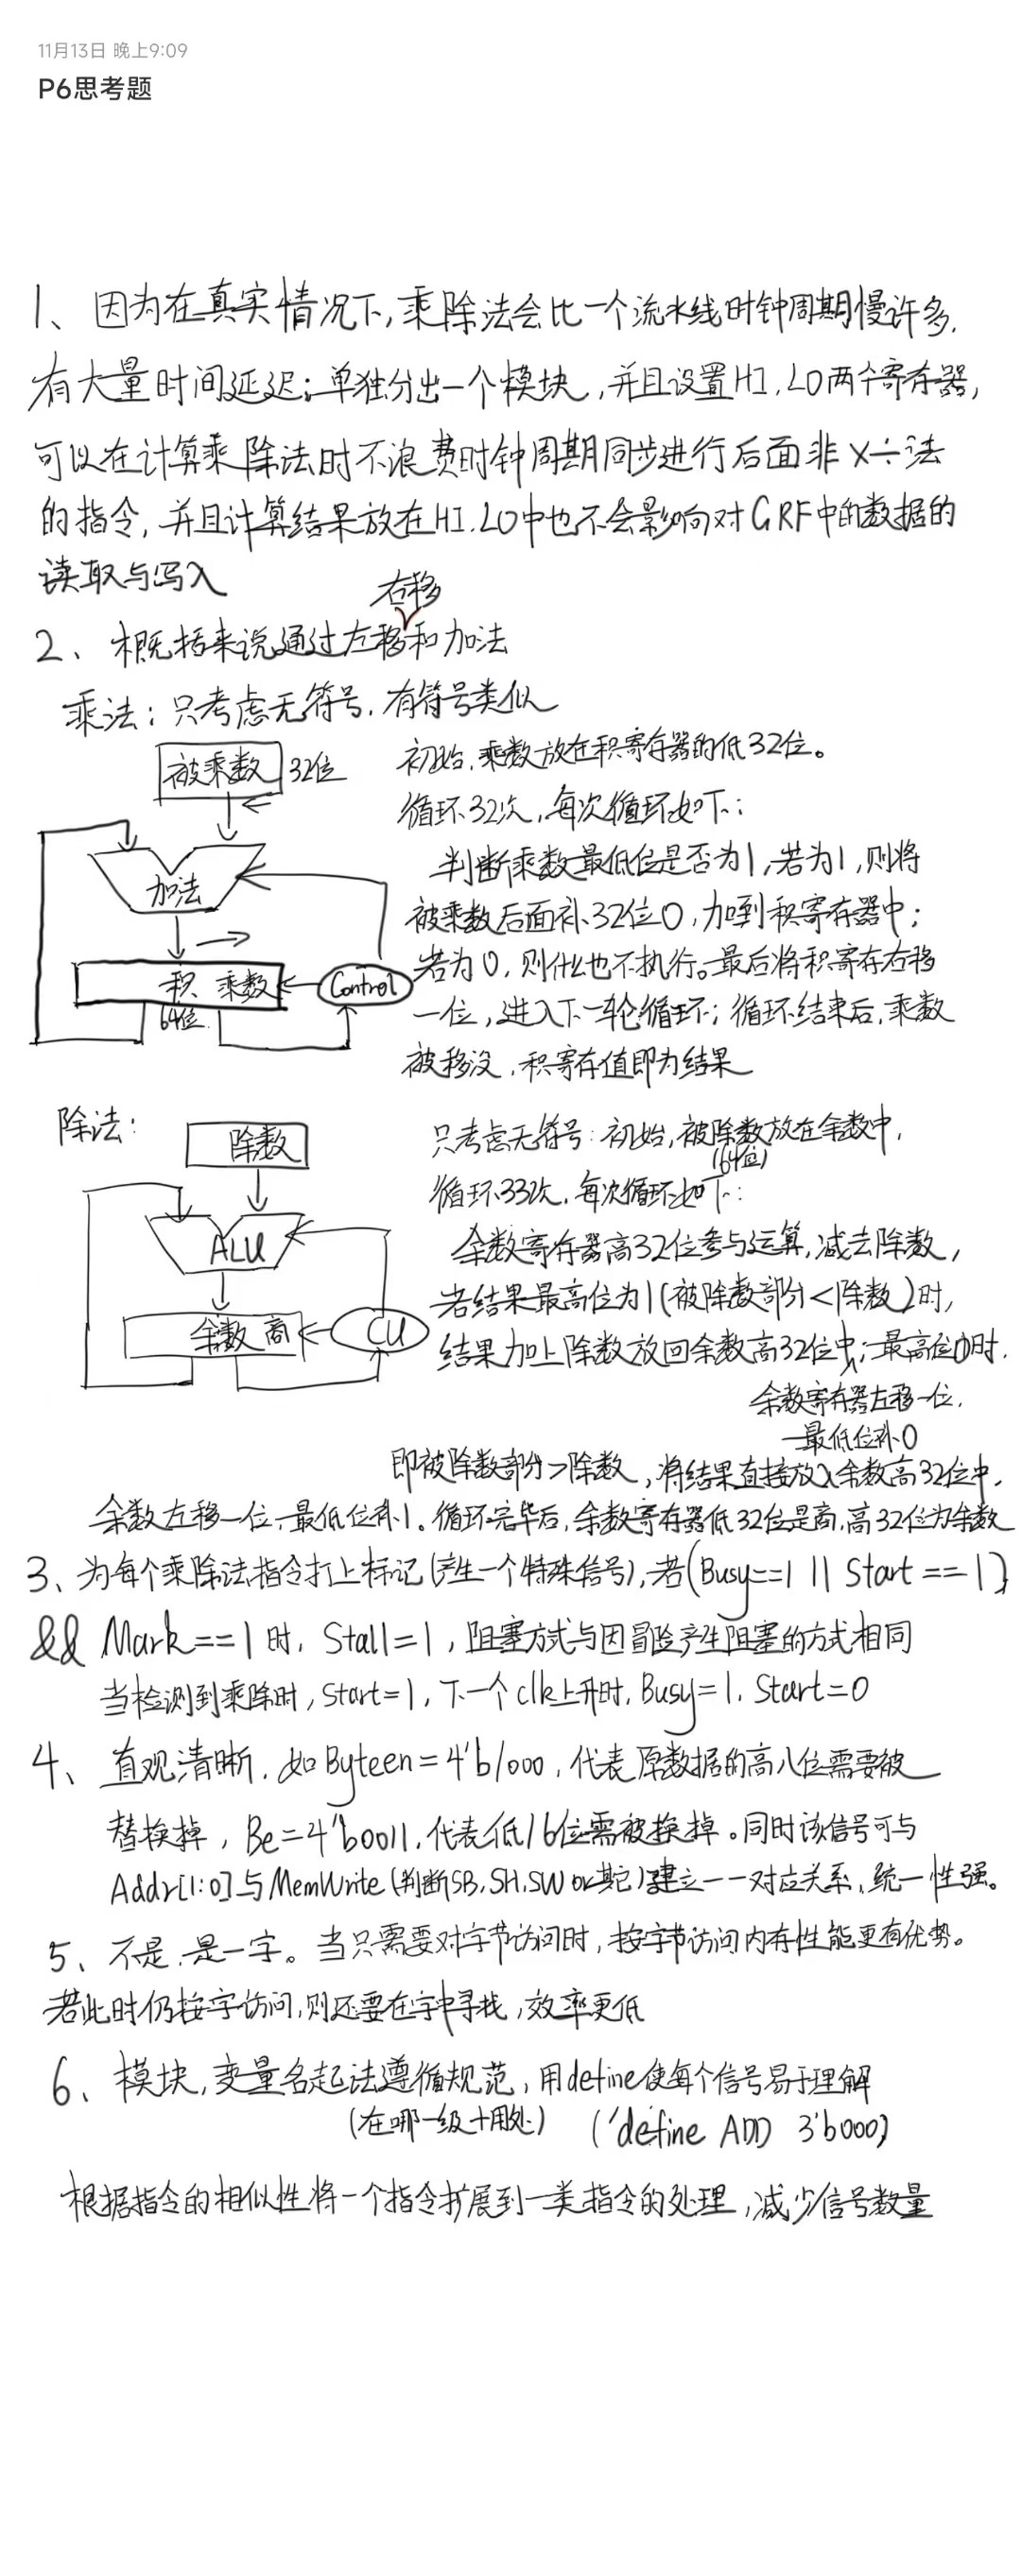 11月13日 晚上9:09
P6思考题
1、因为在真实情况下,乘除法会比一个流水线时钟周期慢许多,
有大量时间延迟;单独分出一个模块,并且设置HI,LO两个寄存器,
可以在计算乘除法时不浪费时钟周期同步进行后面非×÷法
的指令,并且计算结果放在HI.LO中也不会影响对GRF中的数据的
读取与写入
右移
2、概括来说通过左移和加法
乘法:只考虑无符号,有符号类似
被乘数 32位
加法
积 乘数
64位
Control
初始,乘数放在积寄存器的低32位。
循环32次,每次循环如下:
判断乘数最低位是否为1,若为1,则将
被乘数后面补32位0,加到积寄存器中;
若为0,则什么也不执行。最后将积寄存右移
一位,进入下一轮循环;循环结束后,乘数
被移没,积寄存值即为结果
除法:
除数
ALU
余数 商
CU
只考虑无符号:初始,被除数放在余数中,
(64位)
循环33次,每次循环如下:
余数寄存器高32位参与运算,减去除数,
若结果最高位为1(被除数部分<除数)时,
结果加上除数放回余数高32位中;最高位0时,
余数寄存器左移一位,
最低位补0
即被除数部分>除数,将结果直接放入余数高32位中,
余数左移一位,最低位补1。循环完毕后,余数寄存器低32位是商,高32位为余数
3、为每个乘除法指令打上标记(产生一个特殊信号),若(Busy==1 || Start==1)
&& Mark==1时, Stall=1,阻塞方式与因冒险产生阻塞的方式相同
当检测到乘除时,Start=1,下一个clk上升时,Busy=1. Start=0
4、直观清晰.如Byteen=4'b1000,代表原数据的高八位需要被
替换掉,Be=4'b0011,代表低16位需被换掉。同时该信号可与
Addr[1:0]与MemWrite(判断SB,SH,SW or其它)建立一一对应关系,统一性强。
5、不是.是一字。当只需要对字节访问时,按字节访问内存性能更有优势。
若此时仍按字访问,则还要在字中寻找,效率更低
6、模块,变量名起法遵循规范,用define使每个信号易于理解
(在哪一级+用处) ('define ADD 3'b000)
根据指令的相似性将一个指令扩展到一类指令的处理,减少信号数量